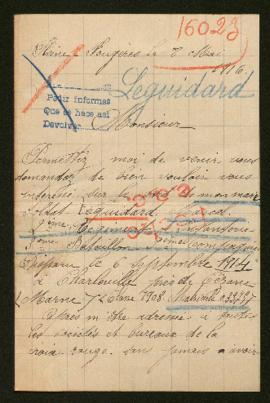 16023
Fougères le 8 Mai
1916
Leguidard
Pedir informes
Que se hace asi
Devolver
Monsieur
Permettez moi de venir vous
demander de bien vouloir vous
intéresser sur le sort de mon mari
Soldat Leguidard
Régiment Infanterie
Bataillon compagnie
disparu le 6 Septembre 1914
à Charleville près de Sézanne
Marne classe 1908 Matricule
Après m'être adressée à toutes
les sociétés et bureaux de la
croix rouge sans jamais avoir